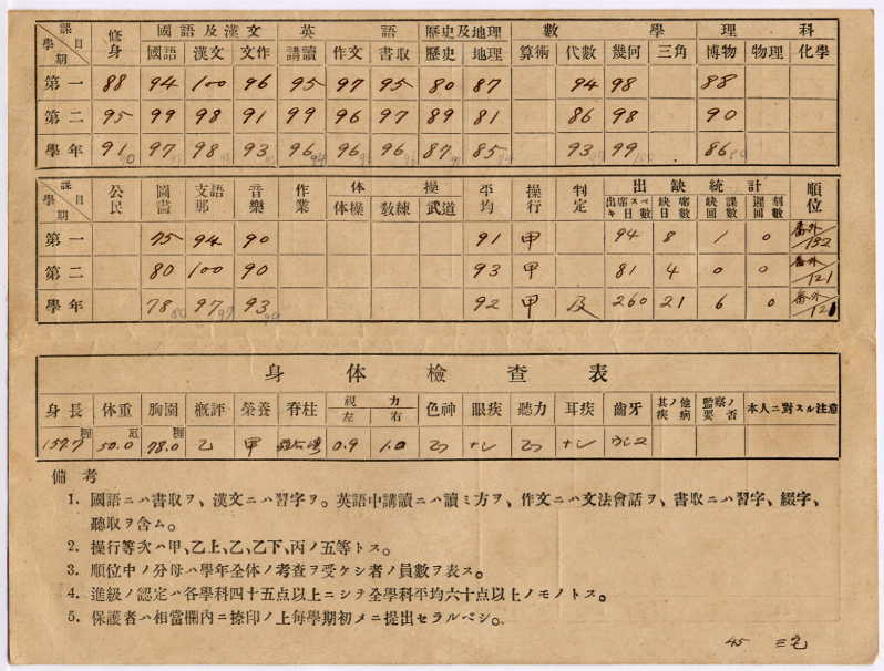 課目 學期 修身 國語及漢文 英語 歷史及地理 數學 理科
國語 漢文 文作 講讀 作文 書取 歷史 地理 算術 代數 幾何 三角 博物 物理 化學
第一 88 94 100 96 95 97 95 80 87 94 98 88
第二 95 99 98 91 99 96 97 89 81 86 98 90
學年 91 97 98 93 96 96 96 87 85 93 99 86
課目 學期 公民 圖畵 支語那 音樂 作業 体操 平均 操行 判定 出缺統計 順位
体操 敎練 武道 出席スベキ日數 缺席日數 缺課回數 遲刻回數
第一 75 94 90 91 甲 94 8 1 0 番外/132
第二 80 100 90 93 甲 81 4 0 0 番外/121
學年 78 97 93 92 甲 及 260 21 6 0 番外/121
身体檢查表
身長 体重 胸圍 槪評 榮養 脊柱 視力 色神 眼疾 聽力 耳疾 齒牙 其ノ他疾病 監察ノ要否 本人ニ對スル注意
左 右
157.7 50.0 78.0 乙 甲 0.9 1.0 ナシ ナシ
備考
1. 國語ニハ書取ヲ、漢文ニハ習字ヲ。英語中講讀ニハ讀ミ方ヲ、作文ニハ文法會話ヲ、書取ニハ習字、綴字、
聽取ヲ含ム。
2. 操行等次ハ甲、乙上、乙、乙下、丙ノ五等トス。
3. 順位中ノ分母ハ學年全体ノ考査ヲ受ケシ者ノ員數ヲ表ス。
4. 進級ノ認定ハ各學科四十五点以上ニシテ全學科平均六十点以上ノモノトス。
5. 保護者ハ相當欄內ニ捺印ノ上每學期初メニ提出セラルベシ。
45